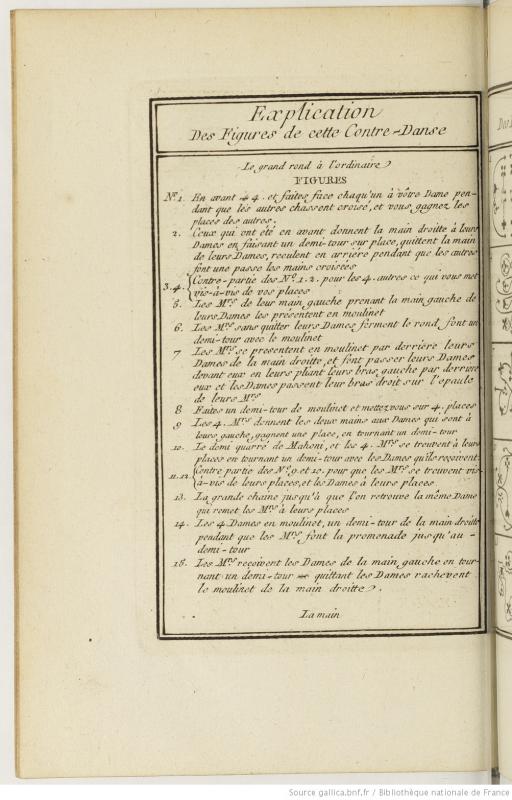 Explication
Des Figures de cette Contre-Danse
Le grand rond à l'ordinaire
FIGURES
Nº 1. En avant 4. et faites face chaqu'un à vôtre Dame pen-
dant que les autres chassent croisé, et vous gagnez les
places des autres.
2. Ceux qui ont été en avant donnent la main droitte à leurs
Dames en faisant un demi-tour sur place, quittent la main
de leurs Dames, reculent en arriére pendant que les autres
font une passe les mains croisées
3.4. { Contre-partie des Nº 1.2. pour les 4. autres ce qui vous met
vis-à-vis de vos places
5. Les Mrs de leur main gauche prenant la main gauche de
leurs Dames les présentent en moulinet
6. Les Mrs sans quitter leurs Dames forment le rond, font un
demi-tour avec le moulinet
7 Les Mrs se presentent en moulinet par derriere leurs
Dames de la main droitte, et font passer leurs Dames
devant eux en leurs pliant leurs bras gauche par derriere
eux et les Dames passent leur bras droit sur l'epaule
de leurs Mrs
8 Faites un demi-tour de moulinet et mettez vous sur 4. places
9 Les 4. Mrs donnent les deux mains aux Dames qui sont à
leurs gauche, gagnent une place, en tournant un demi-tour
10. Le demi quarré de Mahoni, et les 4. Mrs se treuvent à leurs
places en tournant un demi-tour avec les Dames qu'ils reçoivent
11.12. { Contre partie des Nº 9. et 10. pour que les Mrs se treuvent vis-
à-vis de leurs places, et les Dames à leurs places
13. La grande chaine jusqu'à que l'on retrouve la même Dame
qui remet les Mrs à leurs places
14. Les 4 Dames en moulinet, un demi-tour de la main droitte
pendant que les Mrs font la promenade jusqu'au
demi-tour
15. Les Mrs reçoivent les Dames de la main gauche en tour-
nant un demi-tour quittant les Dames rachevent
le moulinet de la main droitte.
La main
Source gallica.bnf.fr / Bibliothèque nationale de France